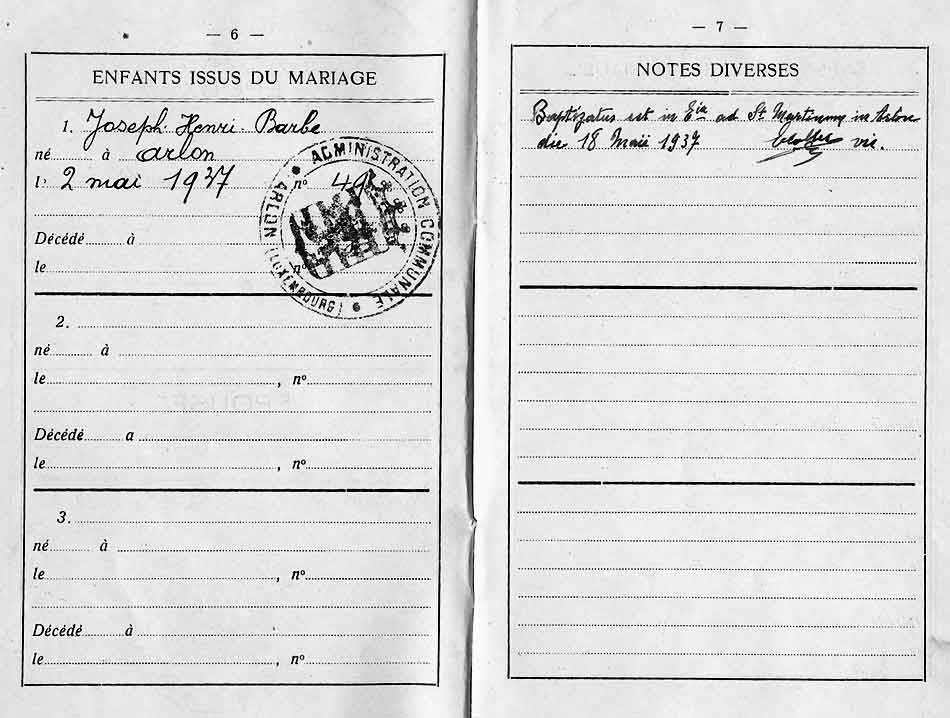 — 6 —
ENFANTS ISSUS DU MARIAGE
1. Joseph Henri Barbe
né à Arlon
le 2 mai 1937 nº 49
ADMINISTRATION COMMUNALE
ARLON (LUXEMBOURG)
Décédé à
le nº
2.
né à
le , nº
Décédé a
le , nº
3.
né à
le , nº
Décédé à
le , nº
— 7 —
NOTES DIVERSES
Baptizatus est in Eia ad St Martinum in Arlon
die 18 Maii 1937 vic.